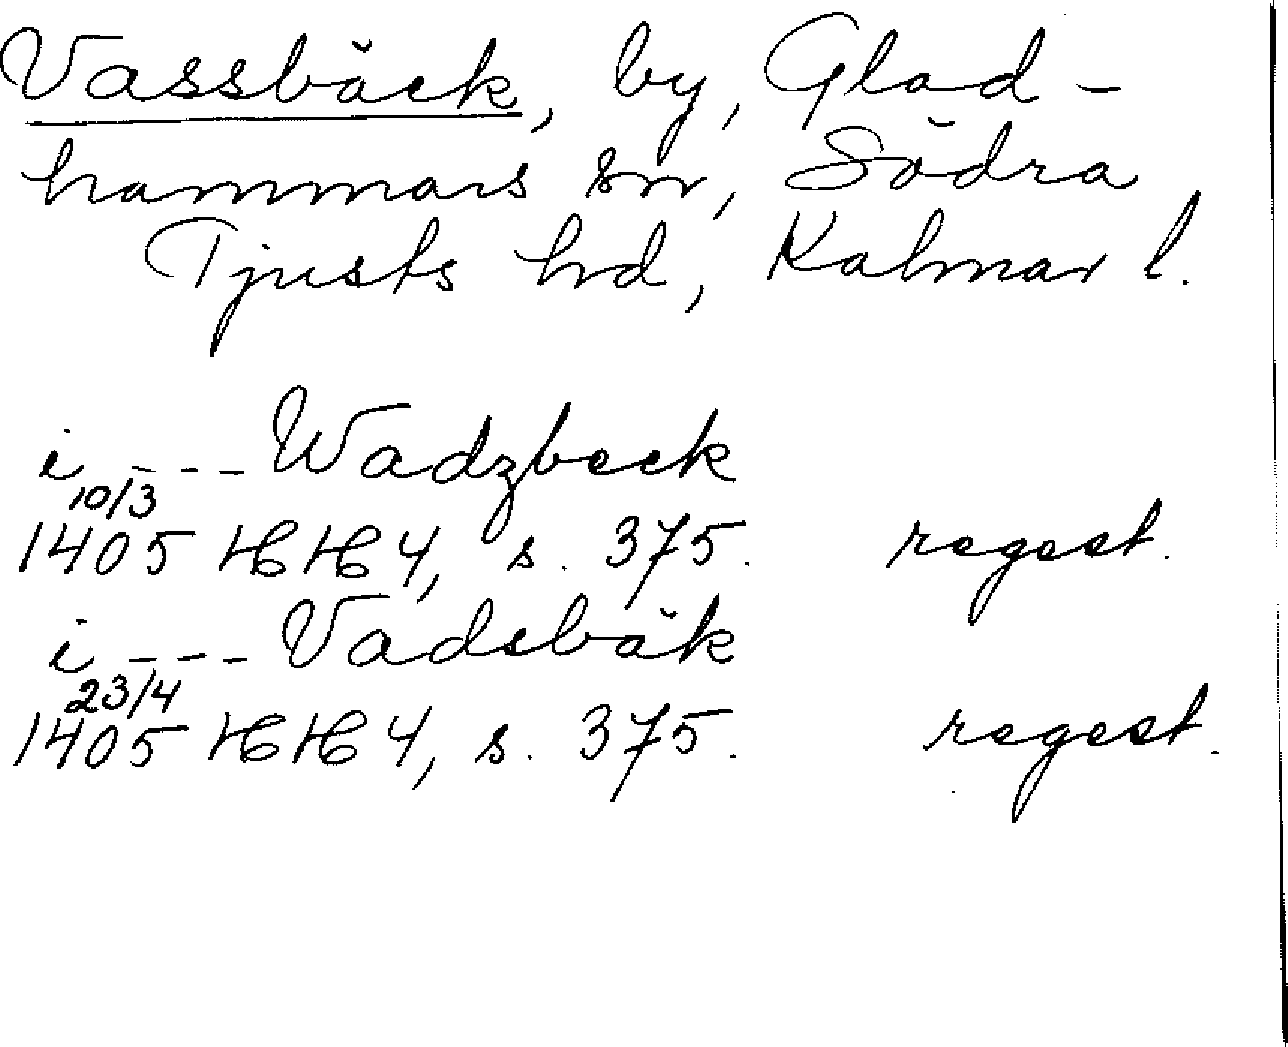 Vassbäck, by, Glad-
hammars sn, Södra
Tjusts hd, Kalmar l.
i --- Wadzbeck
10/3
1405 HH 4, s. 375. regest.
i --- Vadsbäk
23/4
1405 HH 4, s. 375. regest.